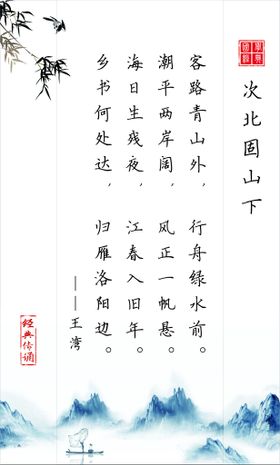 次北固山下
客路青山外，行舟绿水前。
潮平两岸阔，风正一帆悬。
海日生残夜，江春入旧年。
乡书何处达，归雁洛阳边。
——王湾
经典传诵